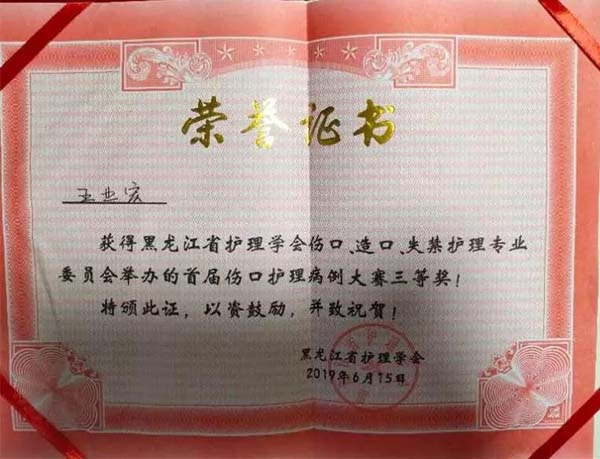 荣誉证书
王亚宏
获得黑龙江省护理学会伤口、造口、失禁护理专业
委员会举办的首届伤口护理病例大赛三等奖！
特颁此证，以资鼓励，并致祝贺！
黑龙江省护理学会
2019年6月15日